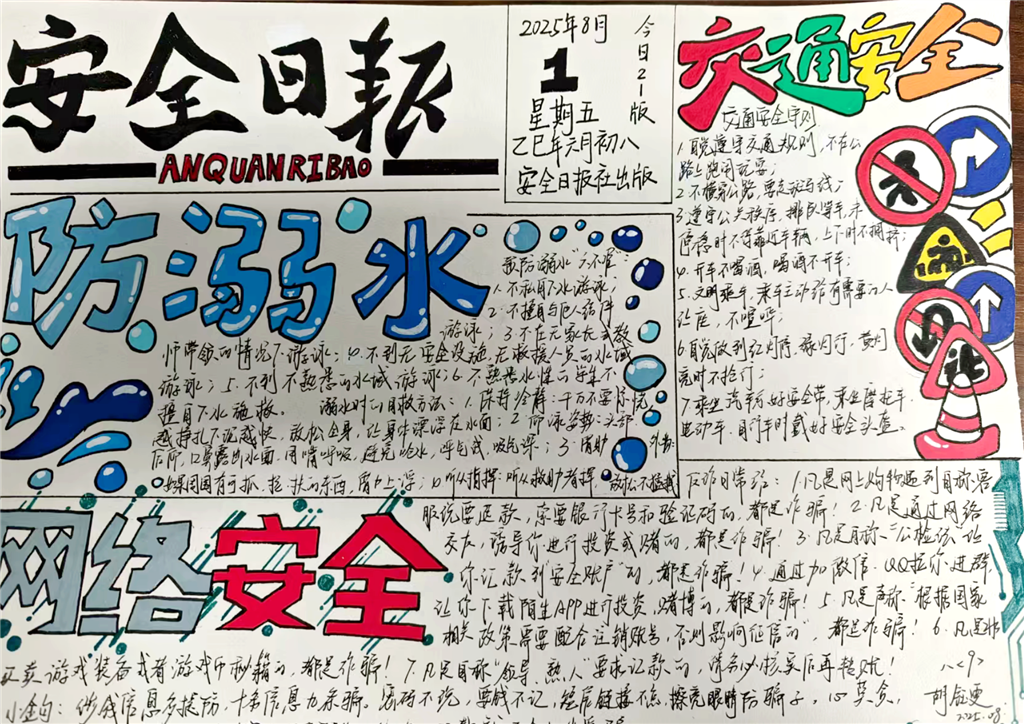 安全日报
ANQUANRIBAO
2025年8月
1
星期五
乙巳年六月初八
安全日报社出版
今日21版
交通安全
交通安全守则
1.自觉遵守交通规则,不在公
路上跑闹玩耍;
2.不横穿公路,要走斑马线;
3.遵守公共秩序,排队等车,未
停稳时不得靠近车辆,上下时不拥挤;
4.开车不喝酒,喝酒不开车;
5.文明乘车,乘车主动给有需要的人
让座,不喧哗;
6.自觉做到红灯停,绿灯行,黄灯
亮时不抢行;
7.乘坐汽车系好安全带,乘坐摩托车
电动车、自行车时戴好安全头盔。
防溺水
预防溺水“六不准”:
1.不私自下水游泳;
2.不擅自与他人结伴
游泳;3.不在无家长或教
师带领的情况下游泳;4.不到无安全设施、无救援人员的水域
游泳;5.不到不熟悉的水域游泳;6.不熟悉水性的学生不
擅自下水施救。溺水时的自救方法:1.保持冷静:千万不要惊慌
越挣扎下沉越快,放松全身,让身体漂浮在水面;2.仰泳姿势:头部
后仰,口鼻露出水面,用嘴呼吸,避免呛水,呼气浅,吸气深;3.借助外物:
如果周围有可抓、抱、扶的东西,借力上浮;4.听从指挥:听从救助者指挥,放松不推拽
网络安全
反诈日常经:1.凡是网上购物遇到自称客
服说要退款,索要银行卡号和验证码的,都是诈骗!2.凡是通过网络
交友,诱导你进行投资或赌的,都是诈骗!3.凡是自称“公检法”让
你汇款到“安全账户”的,都是诈骗!4.通过加微信、QQ拉你进群,
让你下载陌生APP进行投资、赌博的,都是诈骗!5.凡是声称“根据国家
相关政策需要配合注销账号,否则影响征信的”,都是诈骗!6.凡是非
买卖游戏装备或者游戏币秒箱的,都是诈骗!7.凡是自称“领导、熟人”要求汇款的,请务必核实后再转账!
金句:涉钱信息多提防,卡来信息力杀骗。密码不说,要钱不记,链接不点,擦亮眼睛防骗子。
八<9>
2025.08